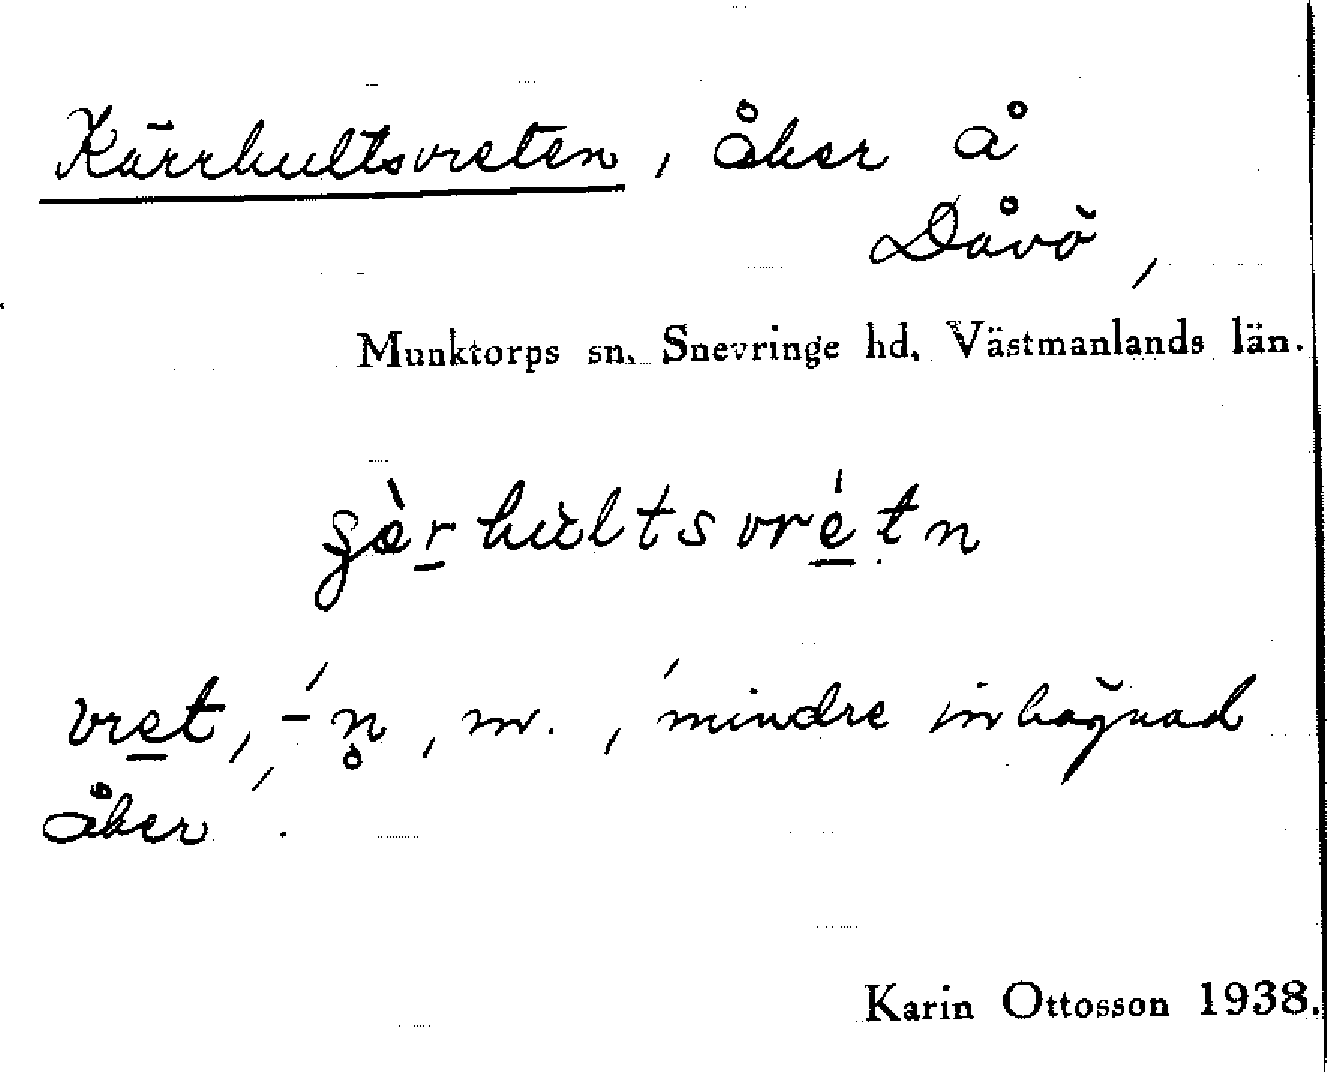 Kärrhultsvreten, åker å
Dåvö,
Munktorps sn. Snevringe hd. Västmanlands län.
vret, -́n̥, m., 'mindre inhägnad
åker'.
Karin Ottosson 1938.